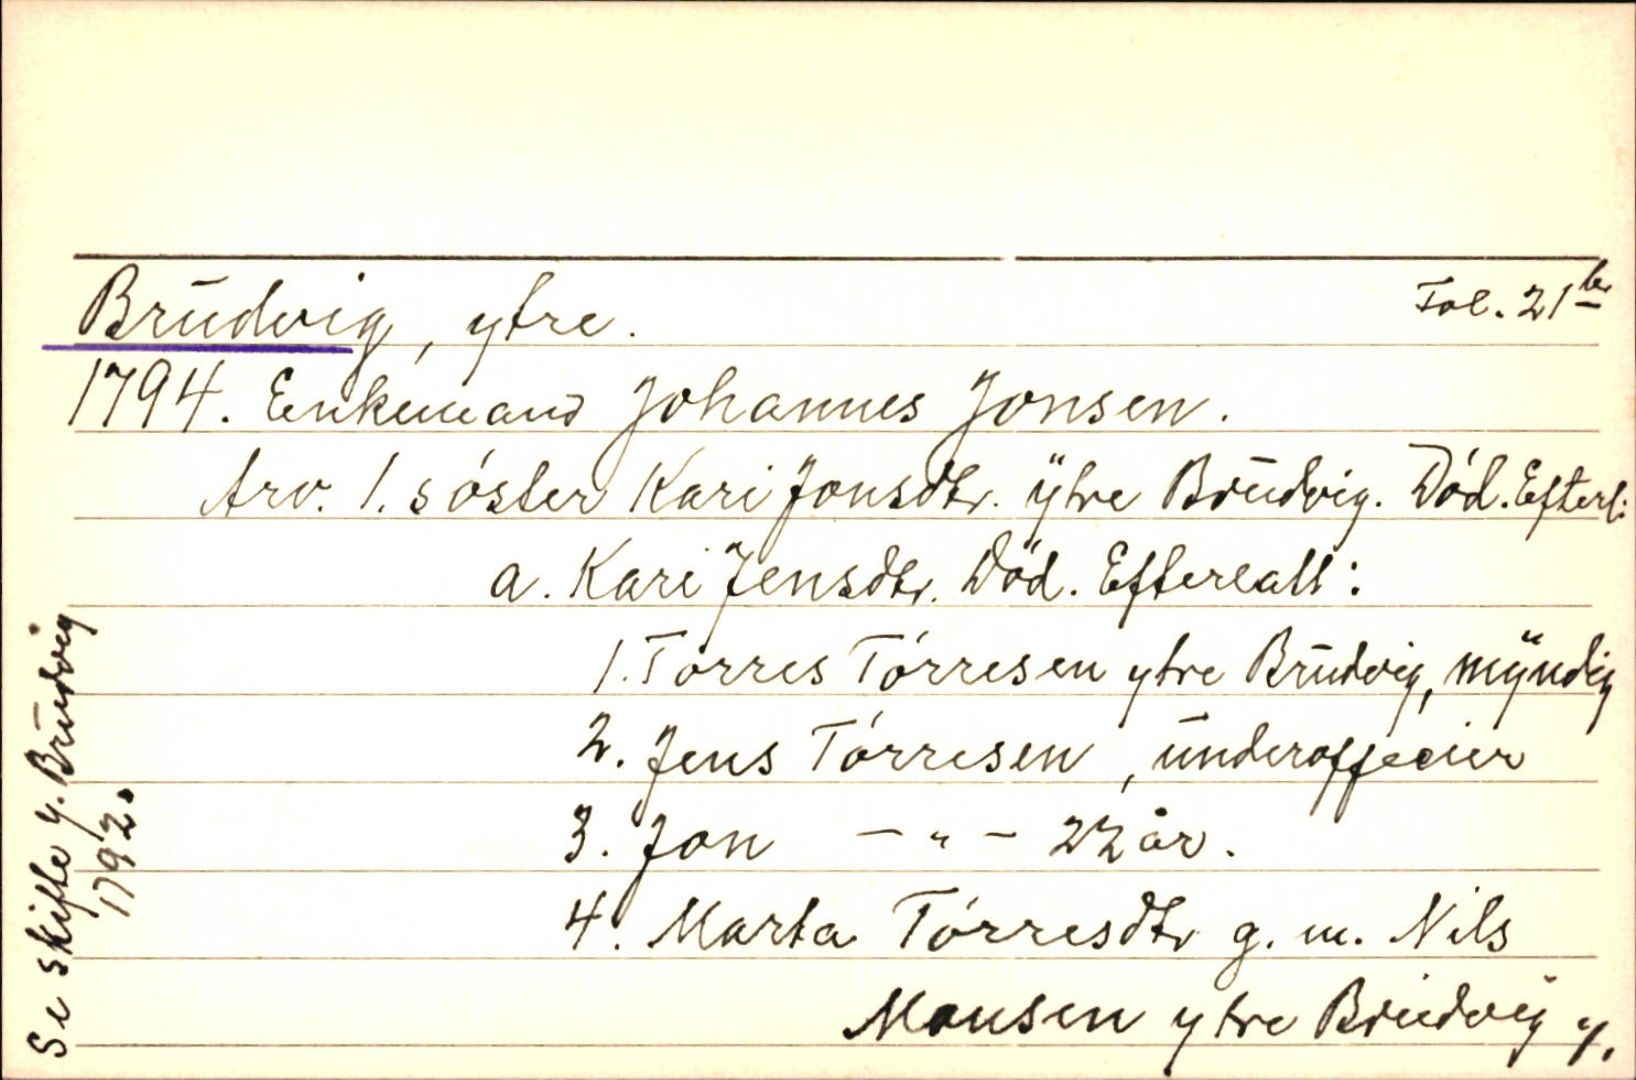 Brudvig, ytre. Fol. 21b
1794. Enkemand Johannes Jonsen.
Arv. 1. söster Kari Jonsdtr. ytre Brudvig. Död. Efterl:
a. Kari Jensdtr. Död. Efterlatt:
1. Torres Törresen ytre Brudvig, myndig
2. Jens Törresen, underofficier
3. Jon — " — 22 år.
4. Marta Törresdtr g. m. Nils
Monsen ytre Brudvig
Se skifte y. Brudvig
1792.